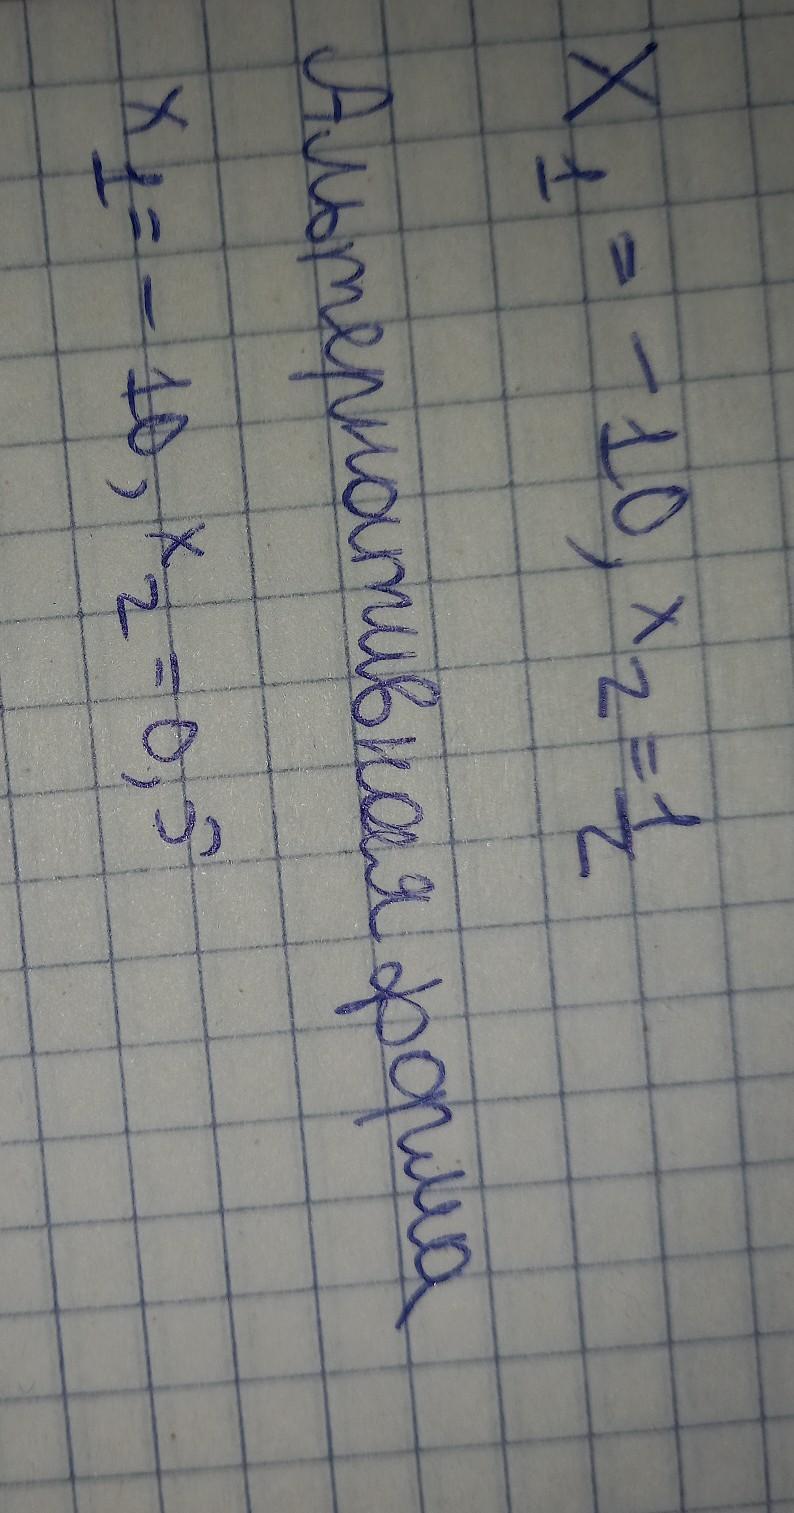 x₁ = -10, x₂ = 1/2
Альтернативная форма
x₁ = -10, x₂ = 0,5